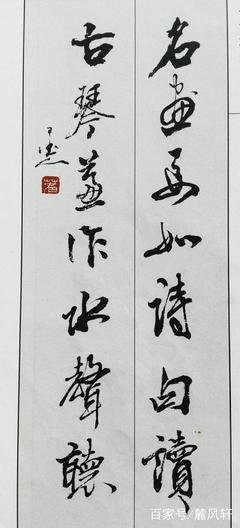 名畫要如詩句讀
古琴兼作水聲聽
百家号/麓风轩